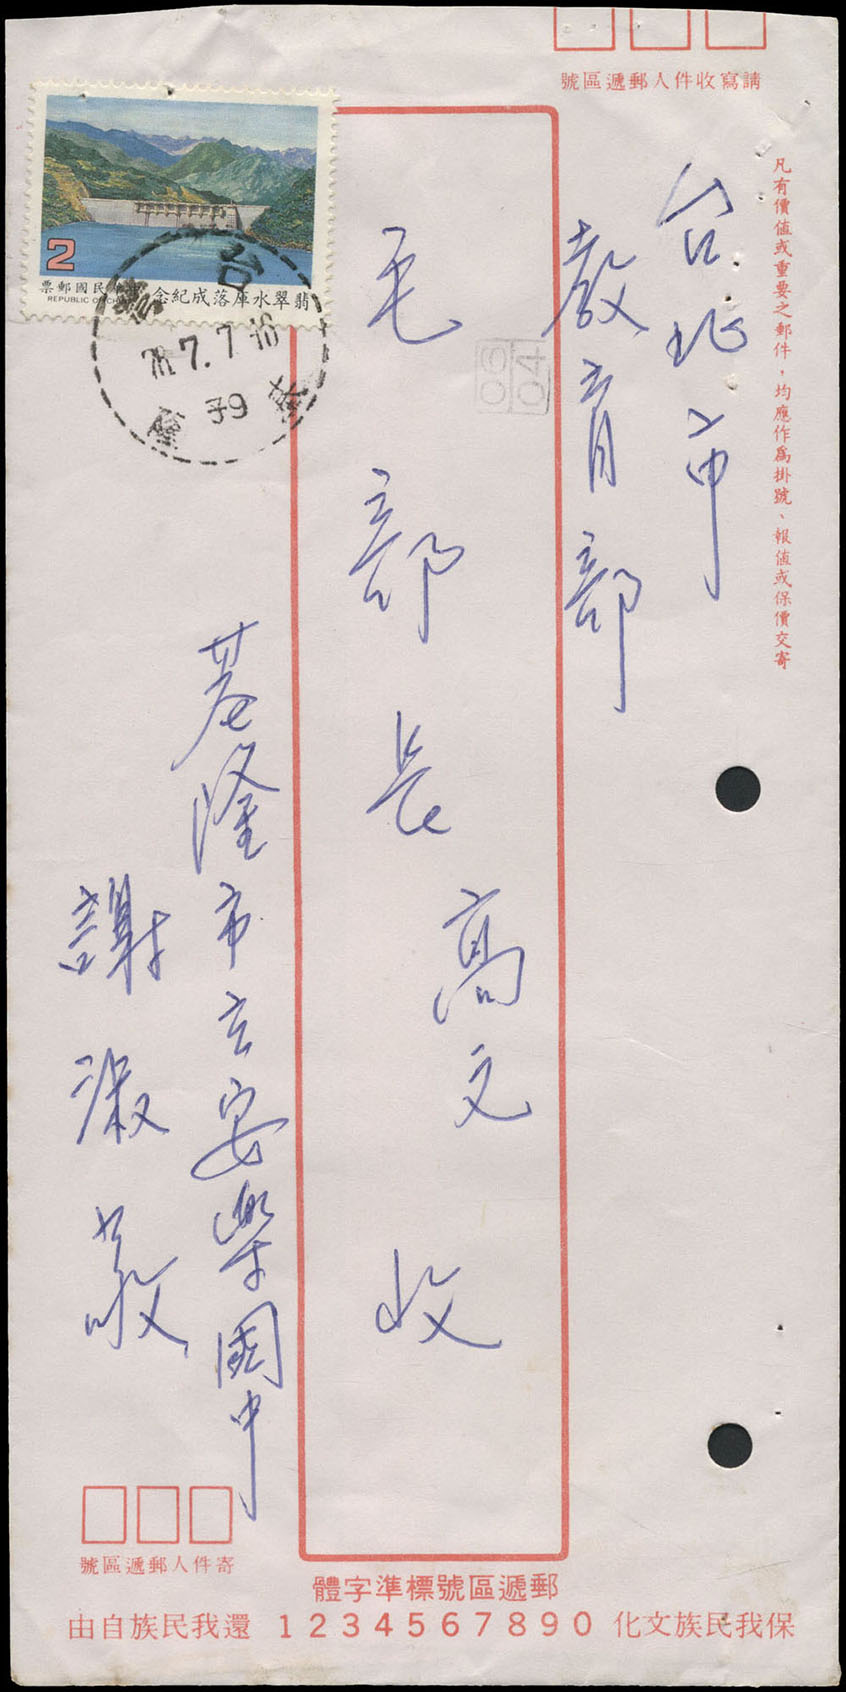 請寫收件人郵遞區號
凡有價值或重要之郵件，均應作為掛號、報值或保價交寄
台北市
教育部
毛部長高文 收
基隆市立安樂國中
謝淑敬
2
中華民國郵票
REPUBLIC OF CHINA
翡翠水庫落成紀念
78.7.7.16
39
05
04
寄件人郵遞區號
郵遞區號標準字體
保我民族文化 1234567890 還我民族自由